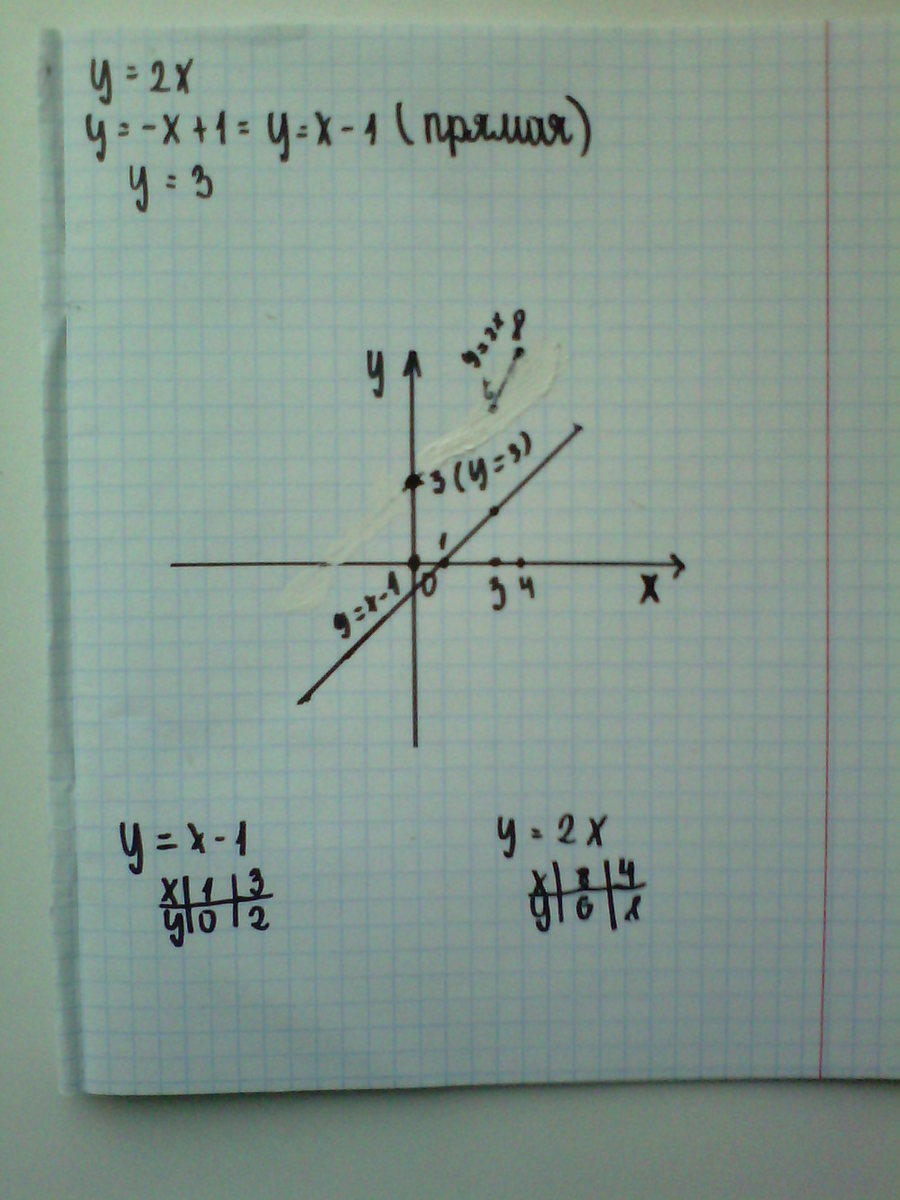 y = 2x
y = -x + 1 = y = x - 1 (прямая)
y = 3
y=2x 8
y
3 (y=3)
1
0 3 4 x
y=x-1
y = x - 1
x | 1 | 3
y | 0 | 2
y = 2x
x | 3 | 4
y | 6 |